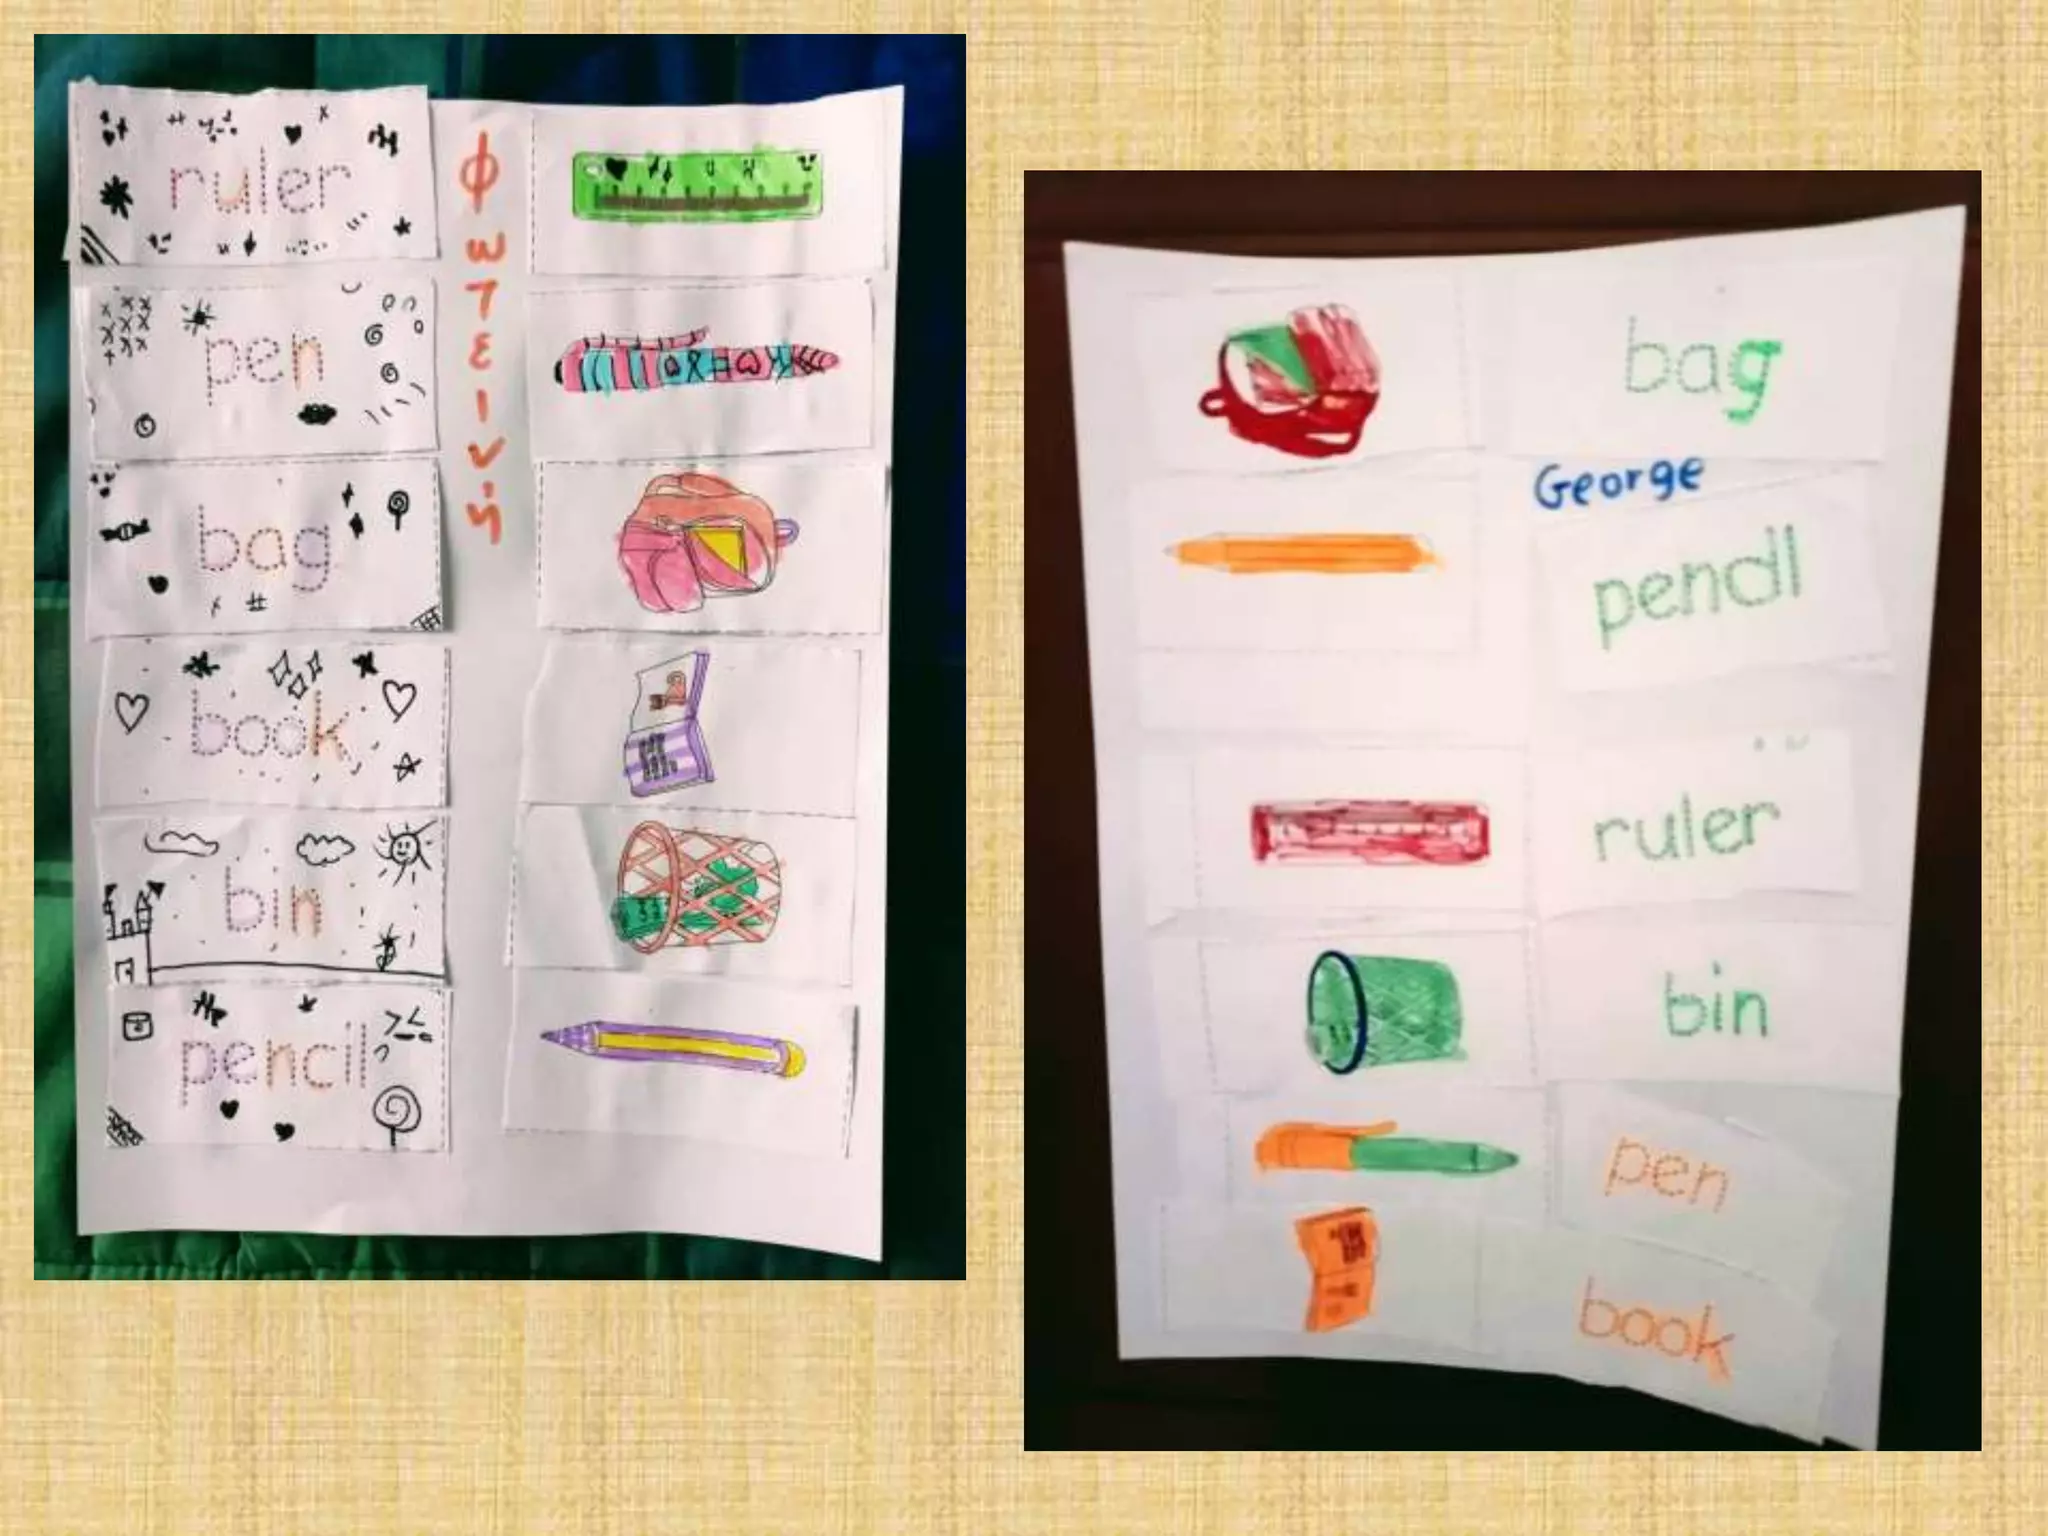 ruler
pen
bag
book
bin
pencil
Φωτεινή
bag
George
pencil
ruler
bin
pen
book